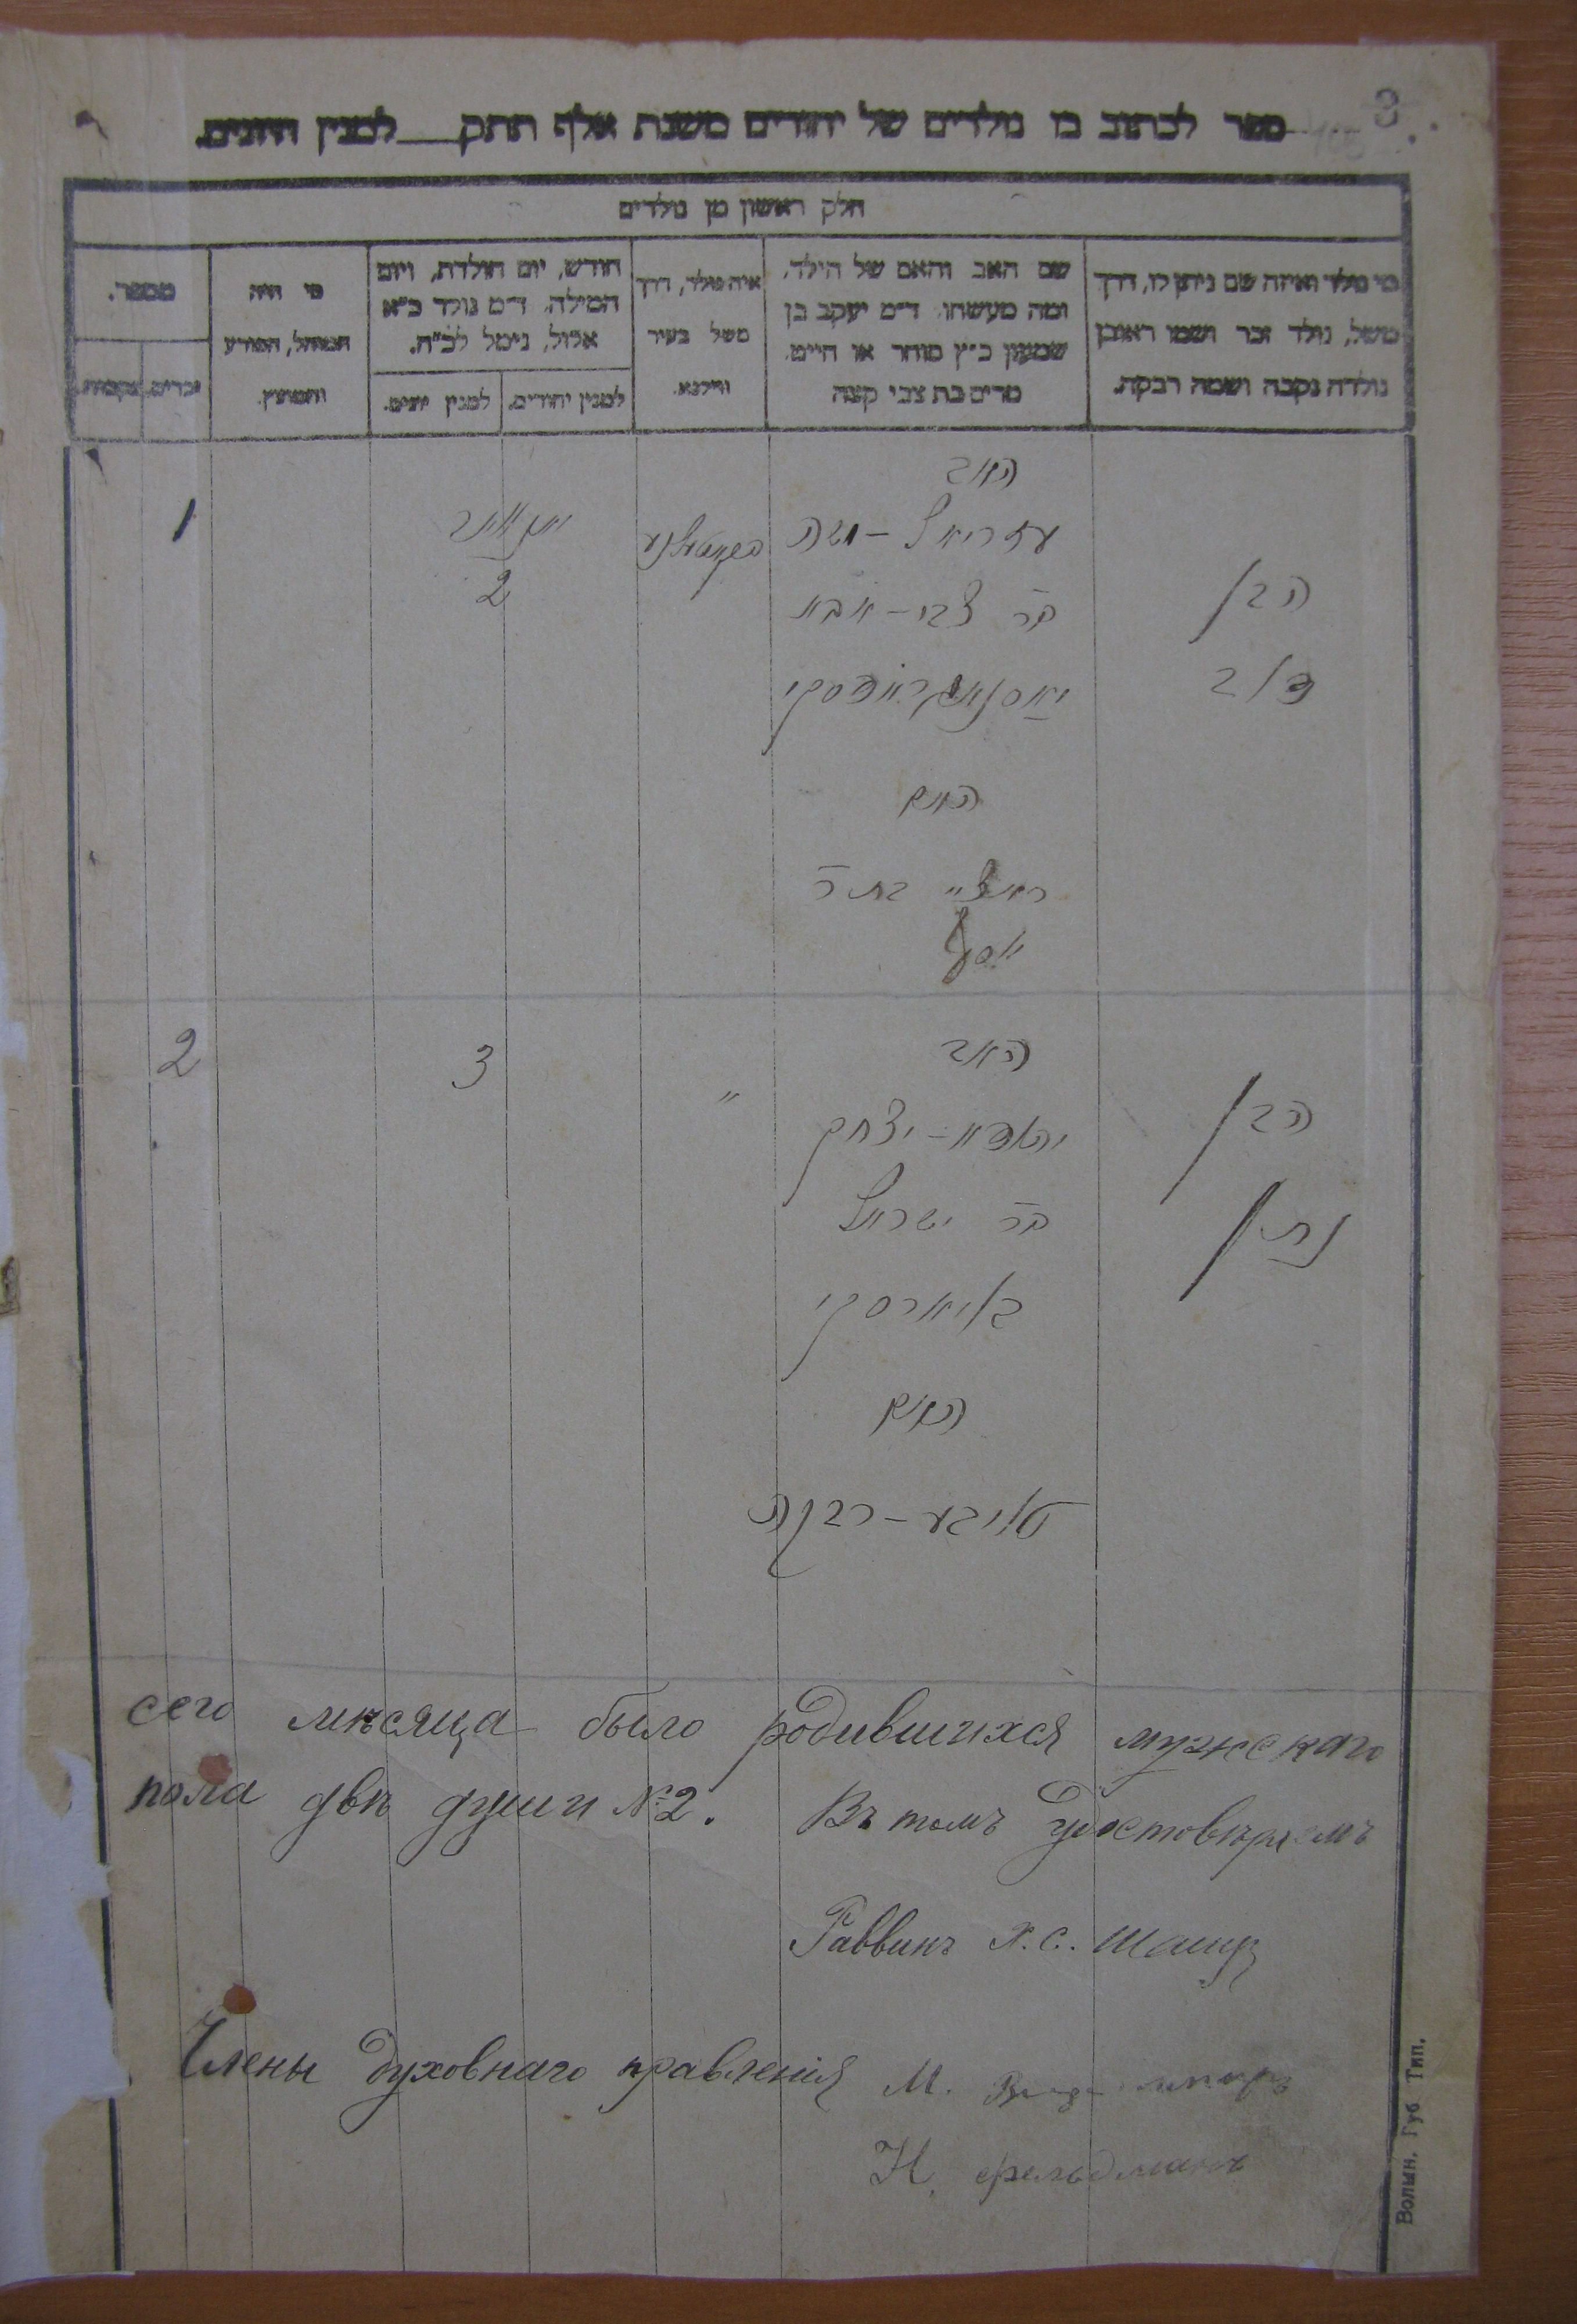 3
ספר לכתוב בו נולדים של יהודים משנת אלף תתק למנין היונים.
חלק ראשון מן נולדים
מי נולד ואיזה שם ניתן לו, דרך
משל, נולד זכר ושמו ראובן
נולדה נקבה ושמה רבקה.
שם האב והאם של הילד,
ומה מעשהו. ד״מ יעקב בן
שמעון כ״ץ סוחר או חייט.
מרים בת צבי קצה
איה נולד, דרך
משל בעיר
ווילנא.
חודש, יום הולדת, ויום
המילה. ד״מ נולד כ״א
אלול, נימל לכ״ח.
למנין יהודים.
למנין יונים.
מי היה
המוהל, הפורע
והמוצץ.
מספר.
זכרים.
נקבות.
הבן
האב
עזריאל-משה
בר צבי-אבא
האם
בת ר
יוסף
יאנואר
2
1
הבן
נתן
האב
יצחק
בר ישראל
באיארסקי
האם
טויבע-רבקה
"
3
2
сего мѣсяца было родившихся мужескаго
пола двѣ души № 2. Въ томъ удостовѣряемъ
Раввинъ Х. С. Шапиръ
Члены духовнаго правленія М.
Н. Фельдманъ
Волын. Губ Тип.